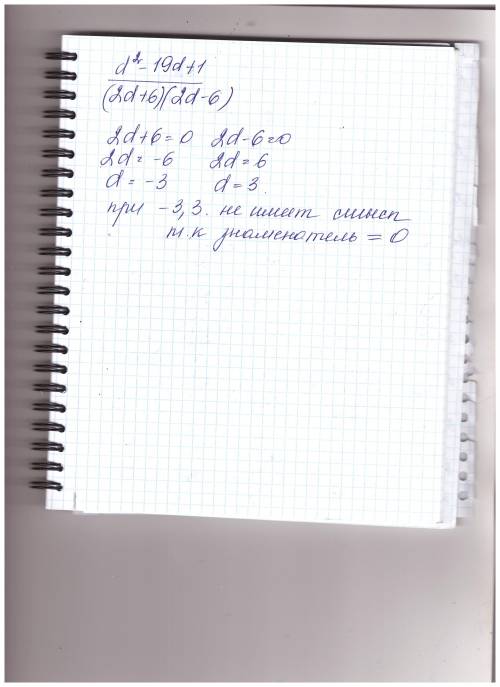 d² - 19d + 1
(2d+6)(2d-6)
2d+6=0 2d-6=0
2d = -6 2d = 6
d = -3 d = 3.
при -3, 3. не имеет смысл
т.к знаменатель = 0